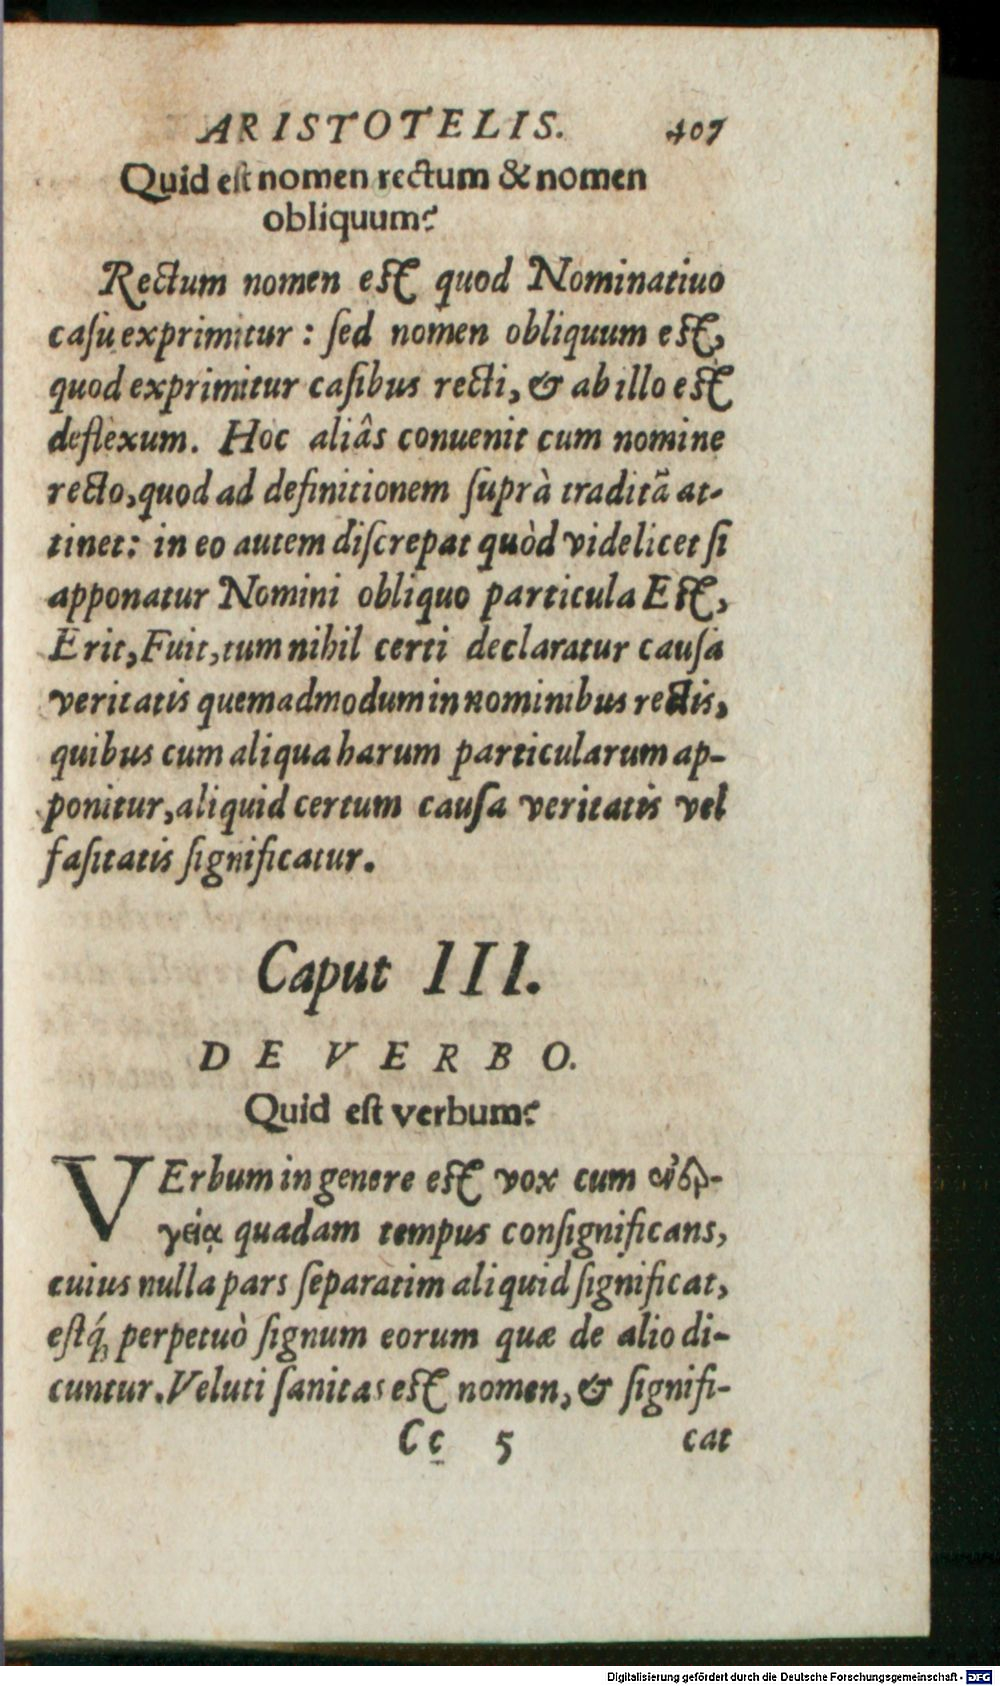 ARISTOTELIS. 407
Quid est nomen rectum & nomen
obliquum?
Rectum nomen est quod Nominatiuo
casu exprimitur : sed nomen obliquum est,
quod exprimitur casibus recti, & ab illo est
deflexum. Hoc aliâs conuenit cum nomine
recto, quod ad definitionem suprà traditã at-
tinet: in eo autem discrepat quòd videlicet si
apponatur Nomini obliquo particula Est,
Erit, Fuit, tum nihil certi declaratur causa
veritatis quemadmodum in nominibus rectis,
quibus cum aliqua harum particularum ap-
ponitur, aliquid certum causa veritatis vel
fasitatis significatur.
Caput III.
DE VERBO.
Quid est verbum?
VErbum in genere est vox cum
γείᾳ quadam tempus consignificans,
cuius nulla pars separatim aliquid significat,
estq́; perpetuò signum eorum quæ de alio di-
cuntur. Veluti sanitas est nomen, & signifi-
Cc 5 cat
Digitalisierung gefördert durch die Deutsche Forschungsgemeinschaft - DFG